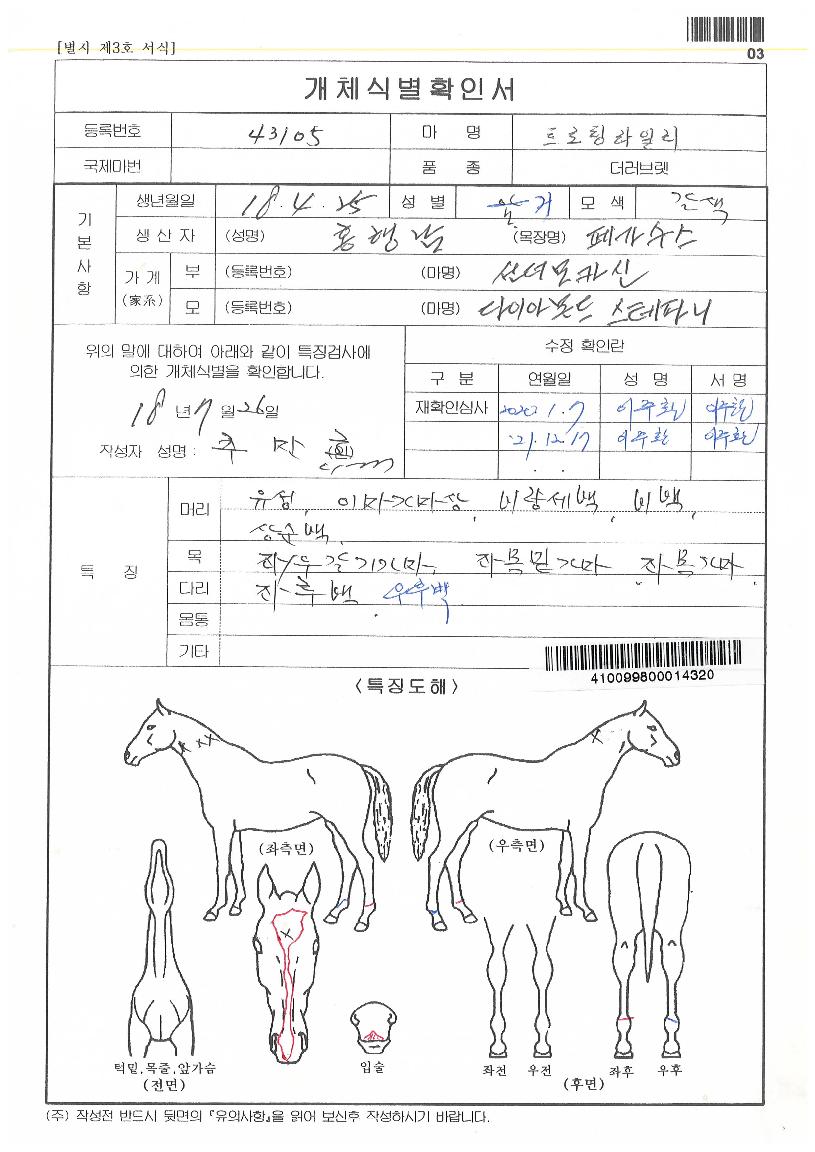 [별지 제3호 서식]
03
개체식별확인서
등록번호 43105 마 명 트로팅라일리
국제마번 품 종 더러브렛
기본사항
생년월일 18. 4. 25 성 별 거 모 색 갈색
생 산 자 (성명) 홍행남 (목장명) 페가수스
가 계 (家系) 부 (등록번호) (마명) 선더모카신
모 (등록번호) (마명) 다이아몬드 스테파니
위의 말에 대하여 아래와 같이 특징검사에
의한 개체식별을 확인합니다.
18 년 7 월 26 일
작성자 성명 : (인)
수정 확인란
구 분 연월일 성 명 서 명
재확인심사 2020. 1. 7 이주환 이주환
'21. 12. 17 이주환 이주환
특 징
머리 유성, 이마가마상, 비량세백, 비백,
상순백,
목 좌/우갈기가마, 좌목밑가마, 좌목가마.
다리 좌후백, 우후백.
몸통
기타
410099800014320
<특징도해>
(좌측면) (우측면)
턱밑,목줄,앞가슴
(전면)
입술
좌전 우전 좌후 우후
(후면)
(주) 작성전 반드시 뒷면의 『유의사항』을 읽어 보신후 작성하시기 바랍니다.